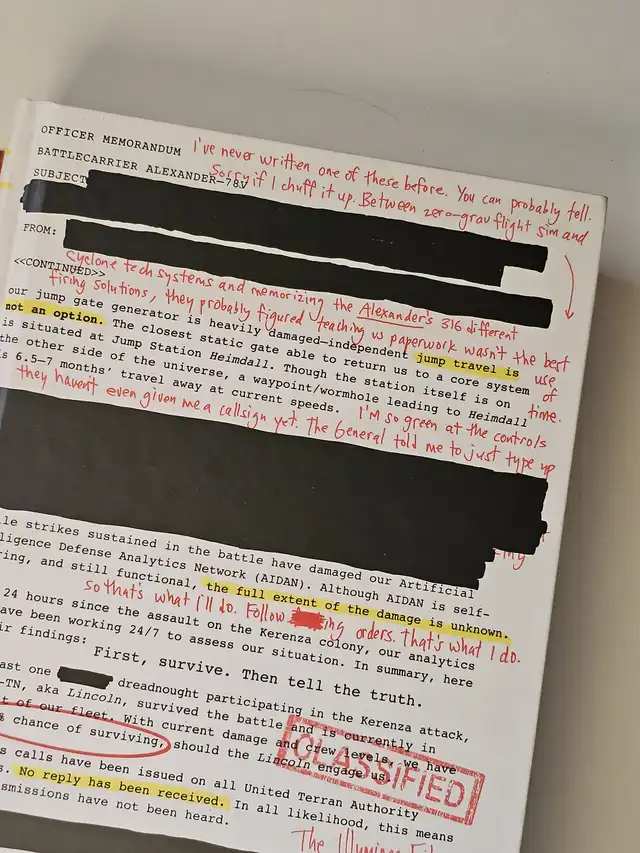 OFFICER MEMORANDUM
I've never written one of these before. You can probably tell.
BATTLECARRIER ALEXANDER-78V
Sorry if I chuff it up. Between zero-grav flight sim and
SUBJECT
FROM:
cyclone tech systems and memorizing the Alexander's 316 different
<<CONTINUED>>
firing solutions, they probably figured teaching us paperwork wasn't the best
use
of
time.
our jump gate generator is heavily damaged—independent jump travel is
not an option. The closest static gate able to return us to a core system
is situated at Jump Station Heimdall. Though the station itself is on
the other side of the universe, a waypoint/wormhole leading to Heimdall
is 6.5–7 months' travel away at current speeds.
I'm so green at the controls
they haven't even given me a callsign yet. The General told me to just type up
le strikes sustained in the battle have damaged our Artificial
ligence Defense Analytics Network (AIDAN). Although AIDAN is self-
ring, and still functional, the full extent of the damage is unknown.
So that's what I'll do. Follow ing orders. That's what I do.
24 hours since the assault on the Kerenza colony, our analytics
ave been working 24/7 to assess our situation. In summary, here
ir findings:
First, survive. Then tell the truth.
ast one dreadnought participating in the Kerenza attack,
-TN, aka Lincoln, survived the battle and is currently in
t of our fleet. With current damage and crew levels, we have
% chance of surviving, should the Lincoln engage us.
CLASSIFIED
s calls have been issued on all United Terran Authority
s. No reply has been received. In all likelihood, this means
smissions have not been heard.
The